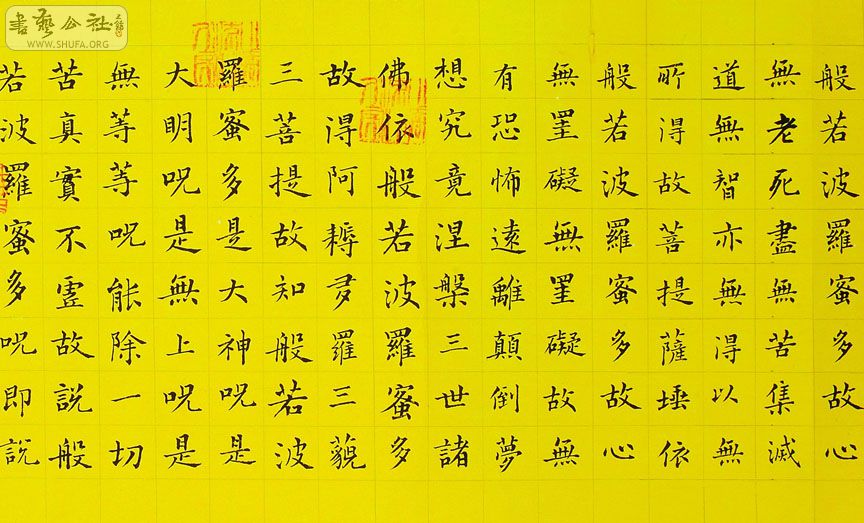 書藝公社
WWW.SHUFA.ORG
般若波羅蜜多故心
無老死盡無苦集滅
道無智亦無得以無
所得故菩提薩埵依
般若波羅蜜多故心
無罣礙無罣礙故無
有恐怖遠離顛倒夢
想究竟涅槃三世諸
佛依般若波羅蜜多
故得阿耨多羅三藐
三菩提故知般若波
羅蜜多是大神呪是
大明呪是無上呪是
無等等呪能除一切
苦真實不虛故說般
若波羅蜜多呪即說